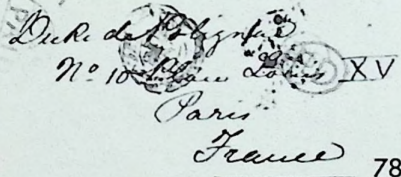 Duke de Polignac
No 10 Place Louis XV
Paris
France
78